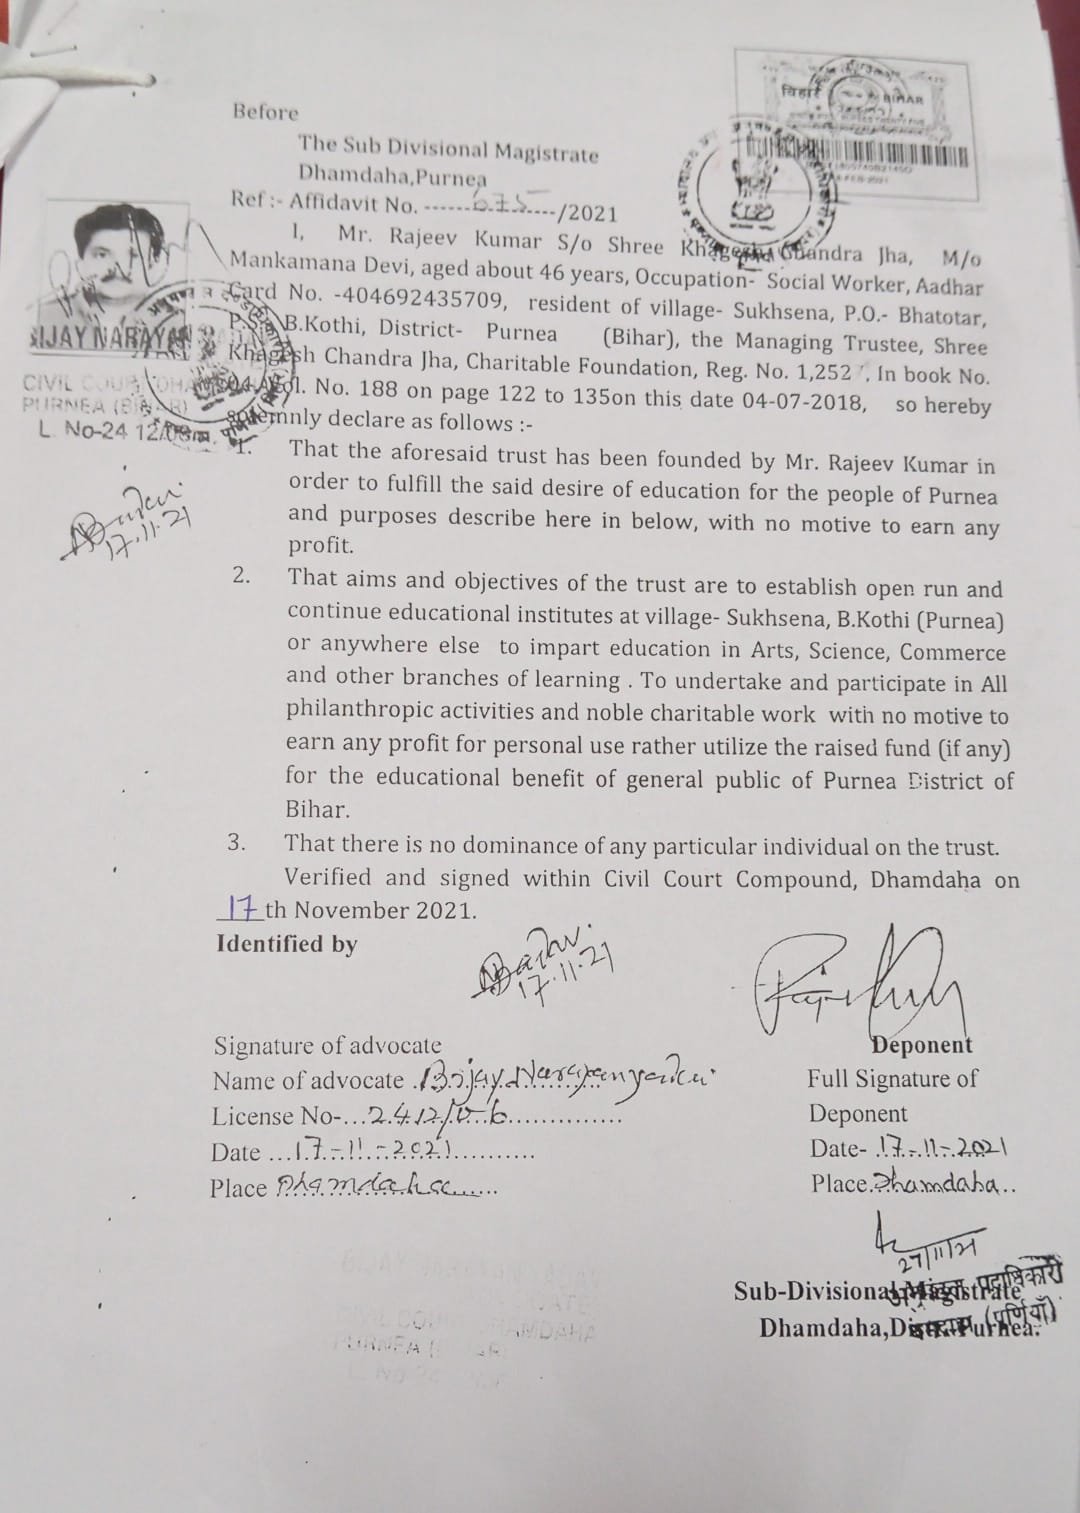 बिहार BIHAR
Before
The Sub Divisional Magistrate
Dhamdaha,Purnea
Ref :- Affidavit No. ------675----/2021
I, Mr. Rajeev Kumar S/o Shree Khagesh Chandra Jha, M/o
Mankamana Devi, aged about 46 years, Occupation- Social Worker, Aadhar
Card No. -404692435709, resident of village- Sukhsena, P.O.- Bhatotar,
P.S.- B.Kothi, District- Purnea (Bihar), the Managing Trustee, Shree
Khagesh Chandra Jha, Charitable Foundation, Reg. No. 1,252 . In book No.
04 Vol. No. 188 on page 122 to 135on this date 04-07-2018, so hereby
solemnly declare as follows :-
IJAY NARAYAN
CIVIL COURT DHA
PURNEA (BIHAR)
L. No-24 12/
17.11.21
1. That the aforesaid trust has been founded by Mr. Rajeev Kumar in
order to fulfill the said desire of education for the people of Purnea
and purposes describe here in below, with no motive to earn any
profit.
2. That aims and objectives of the trust are to establish open run and
continue educational institutes at village- Sukhsena, B.Kothi (Purnea)
or anywhere else to impart education in Arts, Science, Commerce
and other branches of learning . To undertake and participate in All
philanthropic activities and noble charitable work with no motive to
earn any profit for personal use rather utilize the raised fund (if any)
for the educational benefit of general public of Purnea District of
Bihar.
3. That there is no dominance of any particular individual on the trust.
Verified and signed within Civil Court Compound, Dhamdaha on
17th November 2021.
Identified by
17.11.21
Signature of advocate
Name of advocate .Bijay Narayan yadav
License No-...2412/06..............
Date ...17-11-2021..........
Place Dhamdaha......
Deponent
Full Signature of
Deponent
Date- .17-11-2021
Place.Dhamdaha..
27/11/21
Sub-Divisional Magistrate
Dhamdaha,Dist.-Purnea.
पदाधिकारी
(पूर्णियाँ)